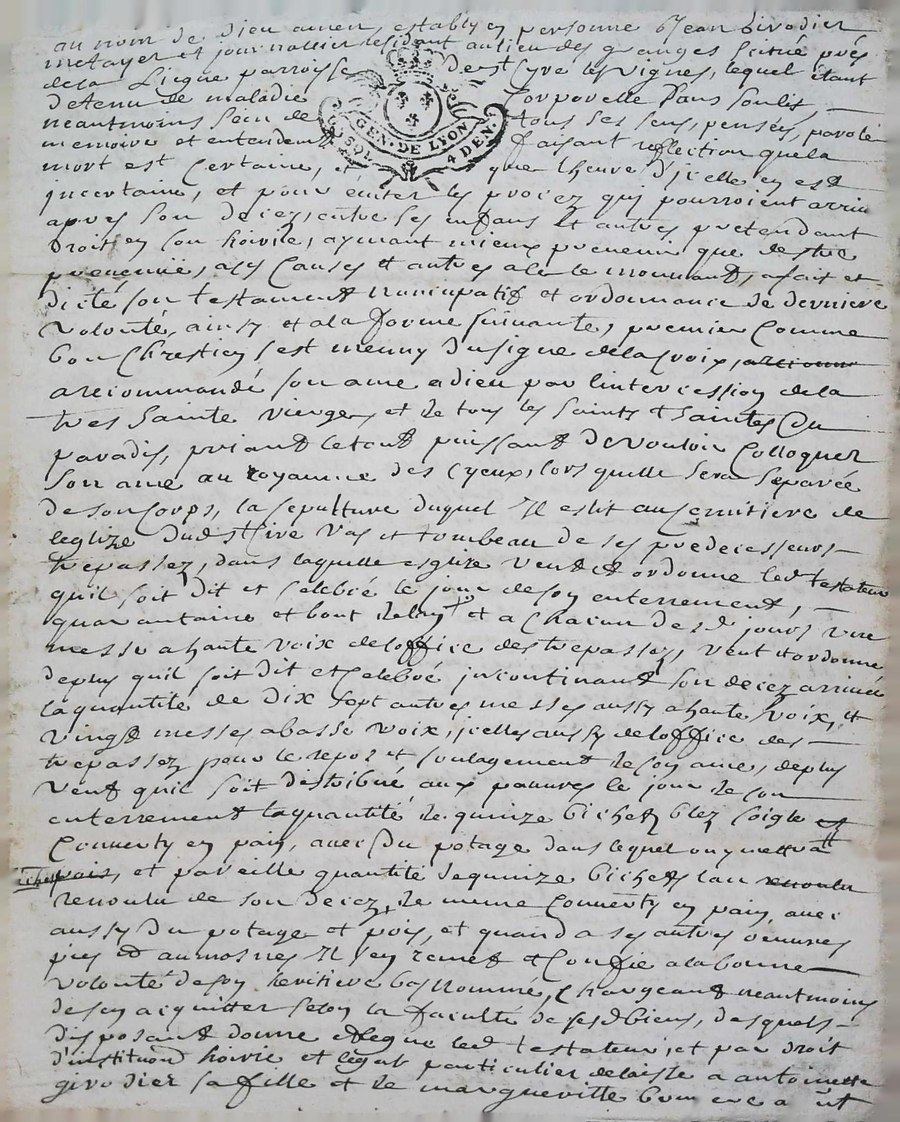 au nom de dieu amen, estably en personne Jean Girodier
metayer et journallier residant au lieu des granges scitué prés
de la Liegue parroisse de st Cyre les vignes, lequel étant
detenu de maladie corporelle dans son lit
neautmoins sain de tous ses sens, pensées, parole
memoire et entendemt faisant reflection que la
mort est Certaine, et que lheure d'jcelle en est
jncertaine, et pour éuiter les procez quj pourroient arriuer
apres son decez, entre ses enfans et autres pretendant
droit en son hoirie, aymant mieux preuenir que destre
preuenüe, a ses Causes et autres a ce le mouuant, a fait et
dicté son testament nuncupatif et ordonnance de derniere
volonté, ainsy et a la forme suiuante, premier Comme
bon Chrestien sest meuny du signe de la croix,
a recommandé son ame a dieu par lintercession de la
tres sainte vierge, et de tous les saints et saintes du
paradis, priant le tout puissant de vouloir Colloquer
son ame au royaume des cyeux, lors quelle sera separée
de son corps, la sepulture duquel Il eslit au semitiere de
leglize dud st Cire vas et tombeau de ses predecesseurs
trepassez, dans laquelle esglize veut et ordonne led testateur
quil soit dit et celebré le jour de son enterrement,
quarantaine et bout de lan, et a chacun desd jours vne
messe a haute voix de loffice des trepassez, veut et ordonne
de plus quil soit dit et celebré jncontinant son decez arriuée
la quantité de dix sept autres messes aussy a haute voix, et
vingt messes a basse voix, jcelles aussy de loffice des
trepassez pour le repoz et soulagement de son ame, de plus
veut quil soit destribué aux pauures le jour de son
enterrement la quantité de quinze bichets blez soigle
Conuerty en pain, auec du potage dans lequel on y mettra
pois, et pareille quantité de quinze bichets lan
reuoulu de son decez, de meme Conuerty en pain, auec
aussy du potage et pois, et quand a ses autres oeuures
pies et aumosnes Il sen remet et Confie a la bonne
volonté de son heritiere bas nommé, Chargeant neautmoins
de sen acquitter selon la faculté de sesd biens, desquels
disposant donne et legue led testateur, et par droit
d'institution hoirie et legat particulier delaisse a antoinette
girodier sa fille et de margueritte
GEN. DE LYON
4 DEN.